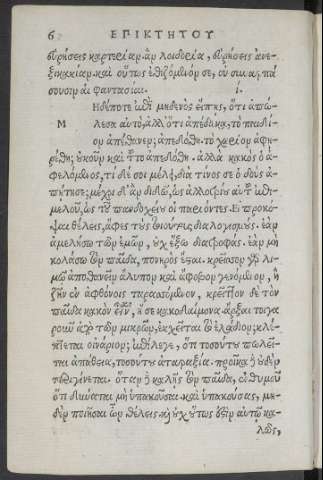 6 ΕΠΙΚΤΗΤΟΥ
εὑρήσεις καρτερίαν. ἂν λοιδορία, εὑρήσεις ἀνε-
ξικακίαν. καὶ οὕτως ἐθιζόμενόν σε, οὐ συναρπά
σουσιν αἱ φαντασίαι.
Μηδέποτε ἐπὶ μηδενὸς εἴπῃς, ὅτι ἀπώ-
λεσα αὐτό, ἀλλ' ὅτι ἀπέδωκα, τὸ παιδί-
ον ἀπέθανεν; ἀπεδόθη. τὸ χωρίον ἀφῃ-
ρέθη; οὐκοῦν καὶ τοῦτο ἀπεδόθη. ἀλλὰ κακὸς ὁ ἀ-
φελόμενος, τί δέ σοι μέλει, διὰ τίνος σε ὁ δοὺς ἀ-
πῄτησε; μέχρι δ' ἂν διδῶ, ὡς ἀλλοτρίου αὐτοῦ ἐπι-
μελοῦ, ὡς τοῦ πανδοχείου οἱ παριόντες. Εἰ προκό-
ψαι θέλεις, ἄφες τοὺς τοιούτους διαλογισμούς. ἐὰν
ἀμελήσω τῶν ἐμῶν, οὐχ ἕξω διατροφάς. ἐὰν μὴ
κολάσω τὸν παῖδα, πονηρὸς ἔσται. κρεῖσσον γὰρ λι-
μῷ ἀποθανεῖν ἄλυπον καὶ ἄφοβον γενόμενον, ἢ
ζῆν ἐν ἀφθόνοις ταρασσόμενον, κρεῖττον δὲ τὸν
παῖδα κακὸν εἶναι, ἢ σε κακοδαίμονα. ἄρξαι τοιγα
ροῦν ἀπὸ τῶν μικρῶν, ἐκχεῖται τὸ ἐλάδιον; κλέ-
πτεται οἰνάριον; ἐπίλεγε, ὅτι τοσούτου πωλεῖ-
ται ἀπάθεια, τοσούτου ἀταραξία. προῖκα δὲ οὐδὲν
περιγίνεται. ὅταν δὲ καλῇς τὸν παῖδα, ἐνθυμοῦ
ὅτι δύναται μὴ ὑπακοῦσαι. καὶ ὑπακούσας, μη-
δὲν ποιῆσαι ὧν θέλεις. ἀλλ' οὐχ οὕτως ἐστὶν αὐτῷ κα-
λῶς,